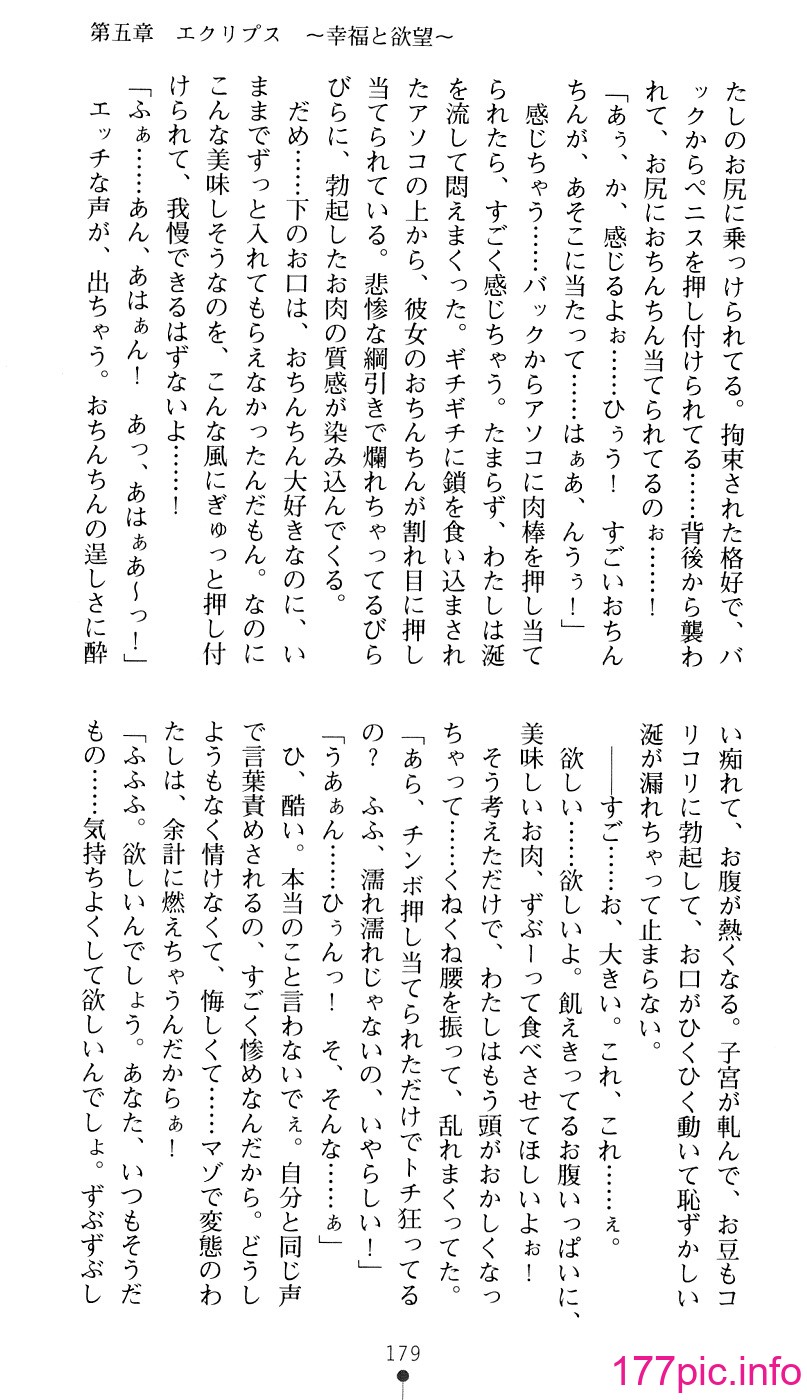 第五章　エクリプス　～幸福と欲望～
たしのお尻に乗っけられてる。拘束された格好で、バ
ックからペニスを押し付けられてる……背後から襲わ
れて、お尻におちんちん当てられてるのぉ……！
「あぅ、か、感じるよぉ……ひぅう！　すごいおちん
ちんが、あそこに当たって……はぁあ、んうぅ！」
　感じちゃう……バックからアソコに肉棒を押し当て
られたら、すごく感じちゃう。たまらず、わたしは涎
を流して悶えまくった。ギチギチに鎖を食い込まされ
たアソコの上から、彼女のおちんちんが割れ目に押し
当てられている。悲惨な綱引きで爛れちゃってるびら
びらに、勃起したお肉の質感が染み込んでくる。
　だめ……下のお口は、おちんちん大好きなのに、い
ままでずっと入れてもらえなかったんだもん。なのに
こんな美味しそうなのを、こんな風にぎゅっと押し付
けられて、我慢できるはずないよ……！
「ふぁ……あん、あはぁん！　あっ、あはぁあ～っ！」
　エッチな声が、出ちゃう。おちんちんの逞しさに酔
い痴れて、お腹が熱くなる。子宮が軋んで、お豆もコ
リコリに勃起して、お口がひくひく動いて恥ずかしい
涎が漏れちゃって止まらない。
　――すご……お、大きい。これ、これ……ぇ。
　欲しい……欲しいよ。飢えきってるお腹いっぱいに、
美味しいお肉、ずぶーって食べさせてほしいよぉ！
　そう考えただけで、わたしはもう頭がおかしくなっ
ちゃって……くねくね腰を振って、乱れまくってた。
「あら、チンボ押し当てられただけでトチ狂ってる
の？　ふふ、濡れ濡れじゃないの、いやらしい！」
「うあぁん……ひぅんっ！　そ、そんな……ぁ」
　ひ、酷い。本当のこと言わないでぇ。自分と同じ声
で言葉責めされるの、すごく惨めなんだから。どうし
ようもなく情けなくて、悔しくて……マゾで変態のわ
たしは、余計に燃えちゃうんだからぁ！
「ふふふ。欲しいんでしょう。あなた、いつもそうだ
もの……気持ちよくして欲しいんでしょ。ずぶずぶし
179
177pic.info